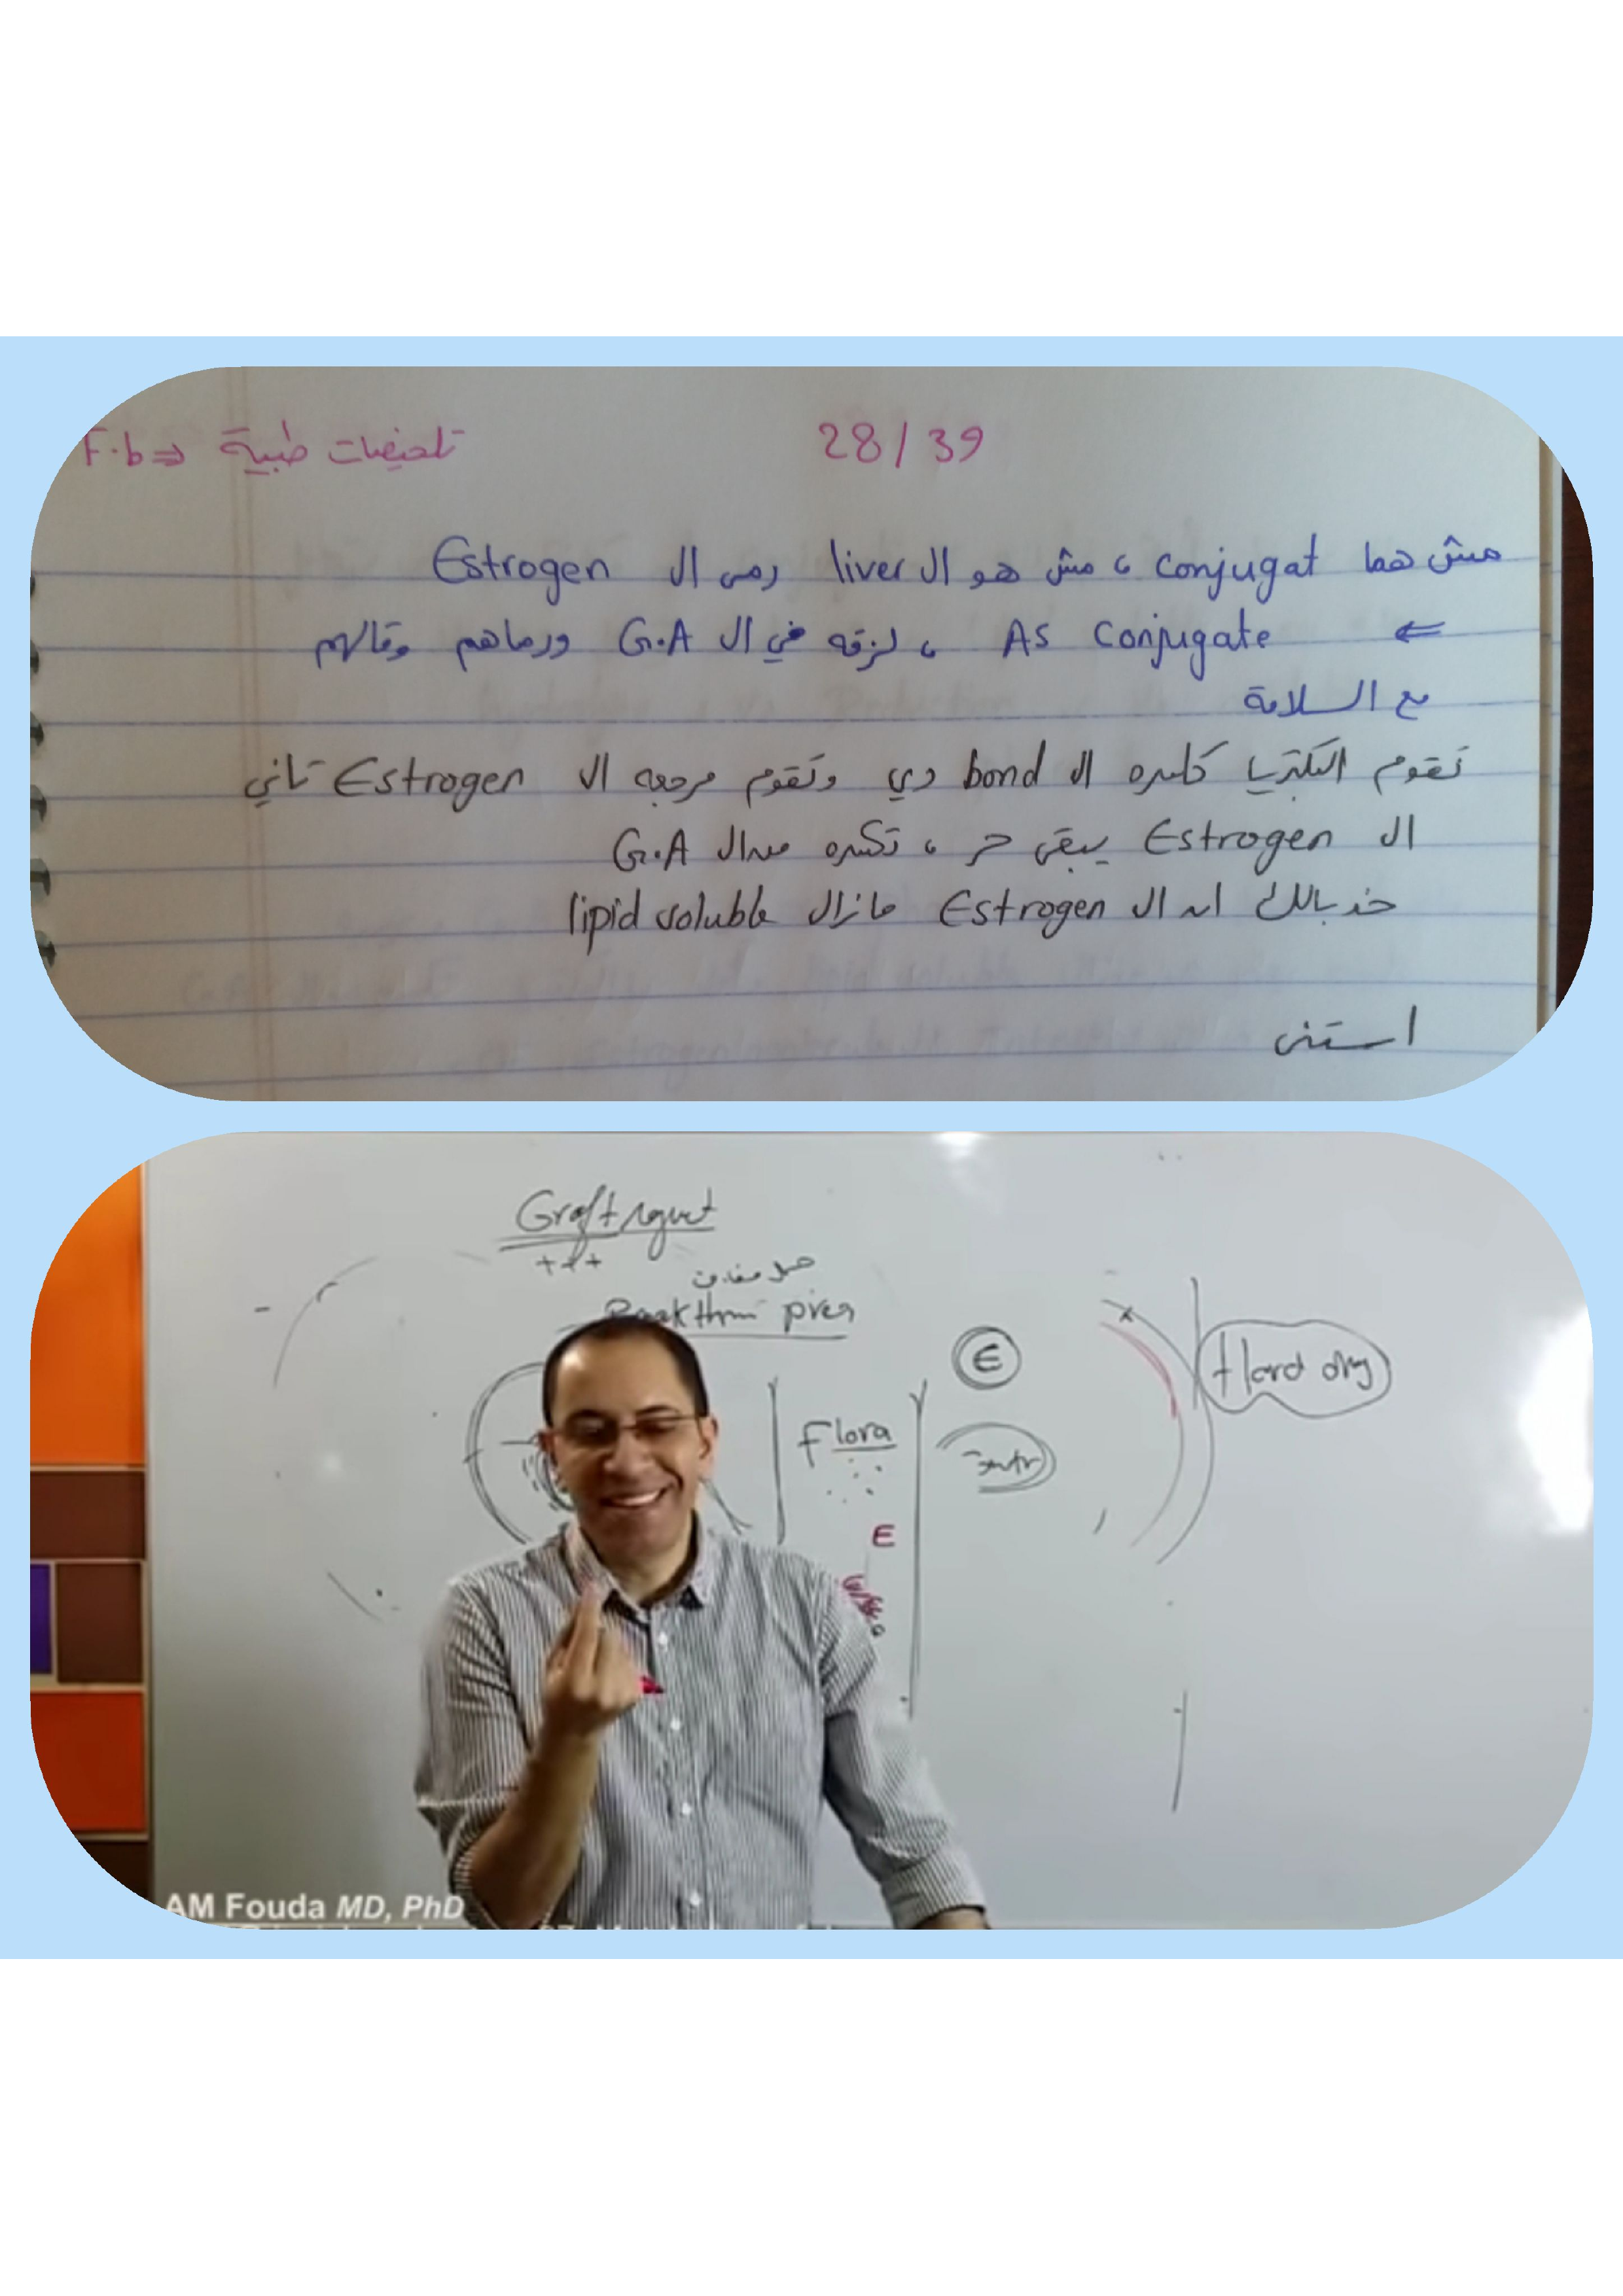 F.b ⇒ تلخيصات طبية 28/39
مش هما conjugat ، مش هو ال liver رمى ال Estrogen
⇐ As conjugate ، لزقه في ال G.A ورماهم وقالهم
مع السلامة
تقوم البكتريا كاسره ال bond دي وتقوم مرجعه ال Estrogen تاني
ال Estrogen يبقى حر ، تكسره من ال G.A
خد بالك ان ال Estrogen مازال lipid soluble
استنى
Graft
+++
صل
Flora
E
E
AM Fouda MD, PhD